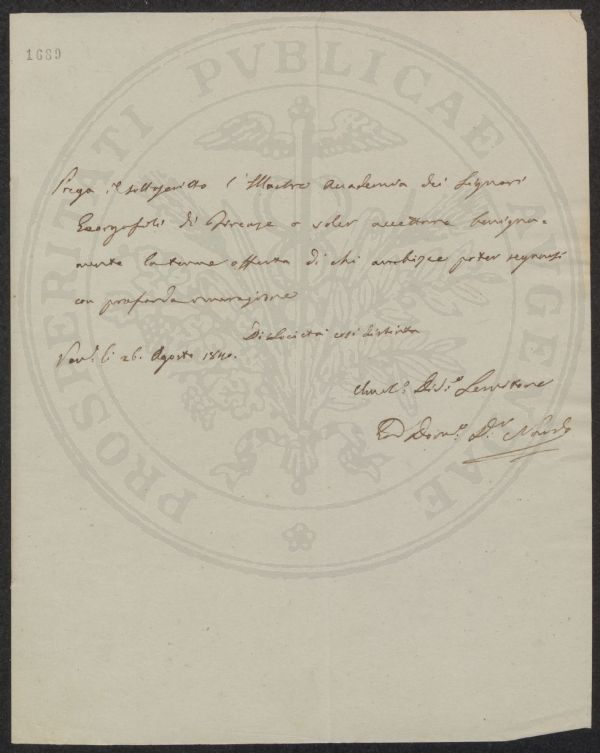 1689
PROSPERITATI PVBLICAE AVGENDAE
Prega il sottoscritto l'Illustre Accademia dei Signori
Georgofili di Firenze a voler accettare benigna-
mente la tenue offerta di chi ambisce poter segnarsi
con profonda venerazione
Di Società così distinta
Ven.ª li 26. Agosto 1840.
Umil.º Div.º Servitore
Domº. D.r Nardo